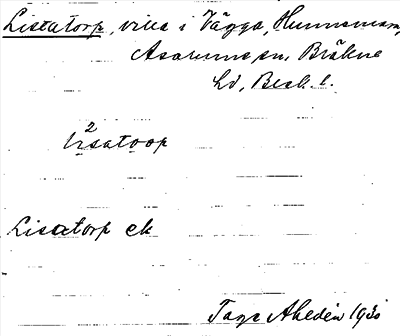 Lisatorp, villa i Vägga, Hunnemara,
Asarums sn, Bräkne
hd, Blek. l.
li2satorp
Lisatorp ek
Tage Ahldén 1930